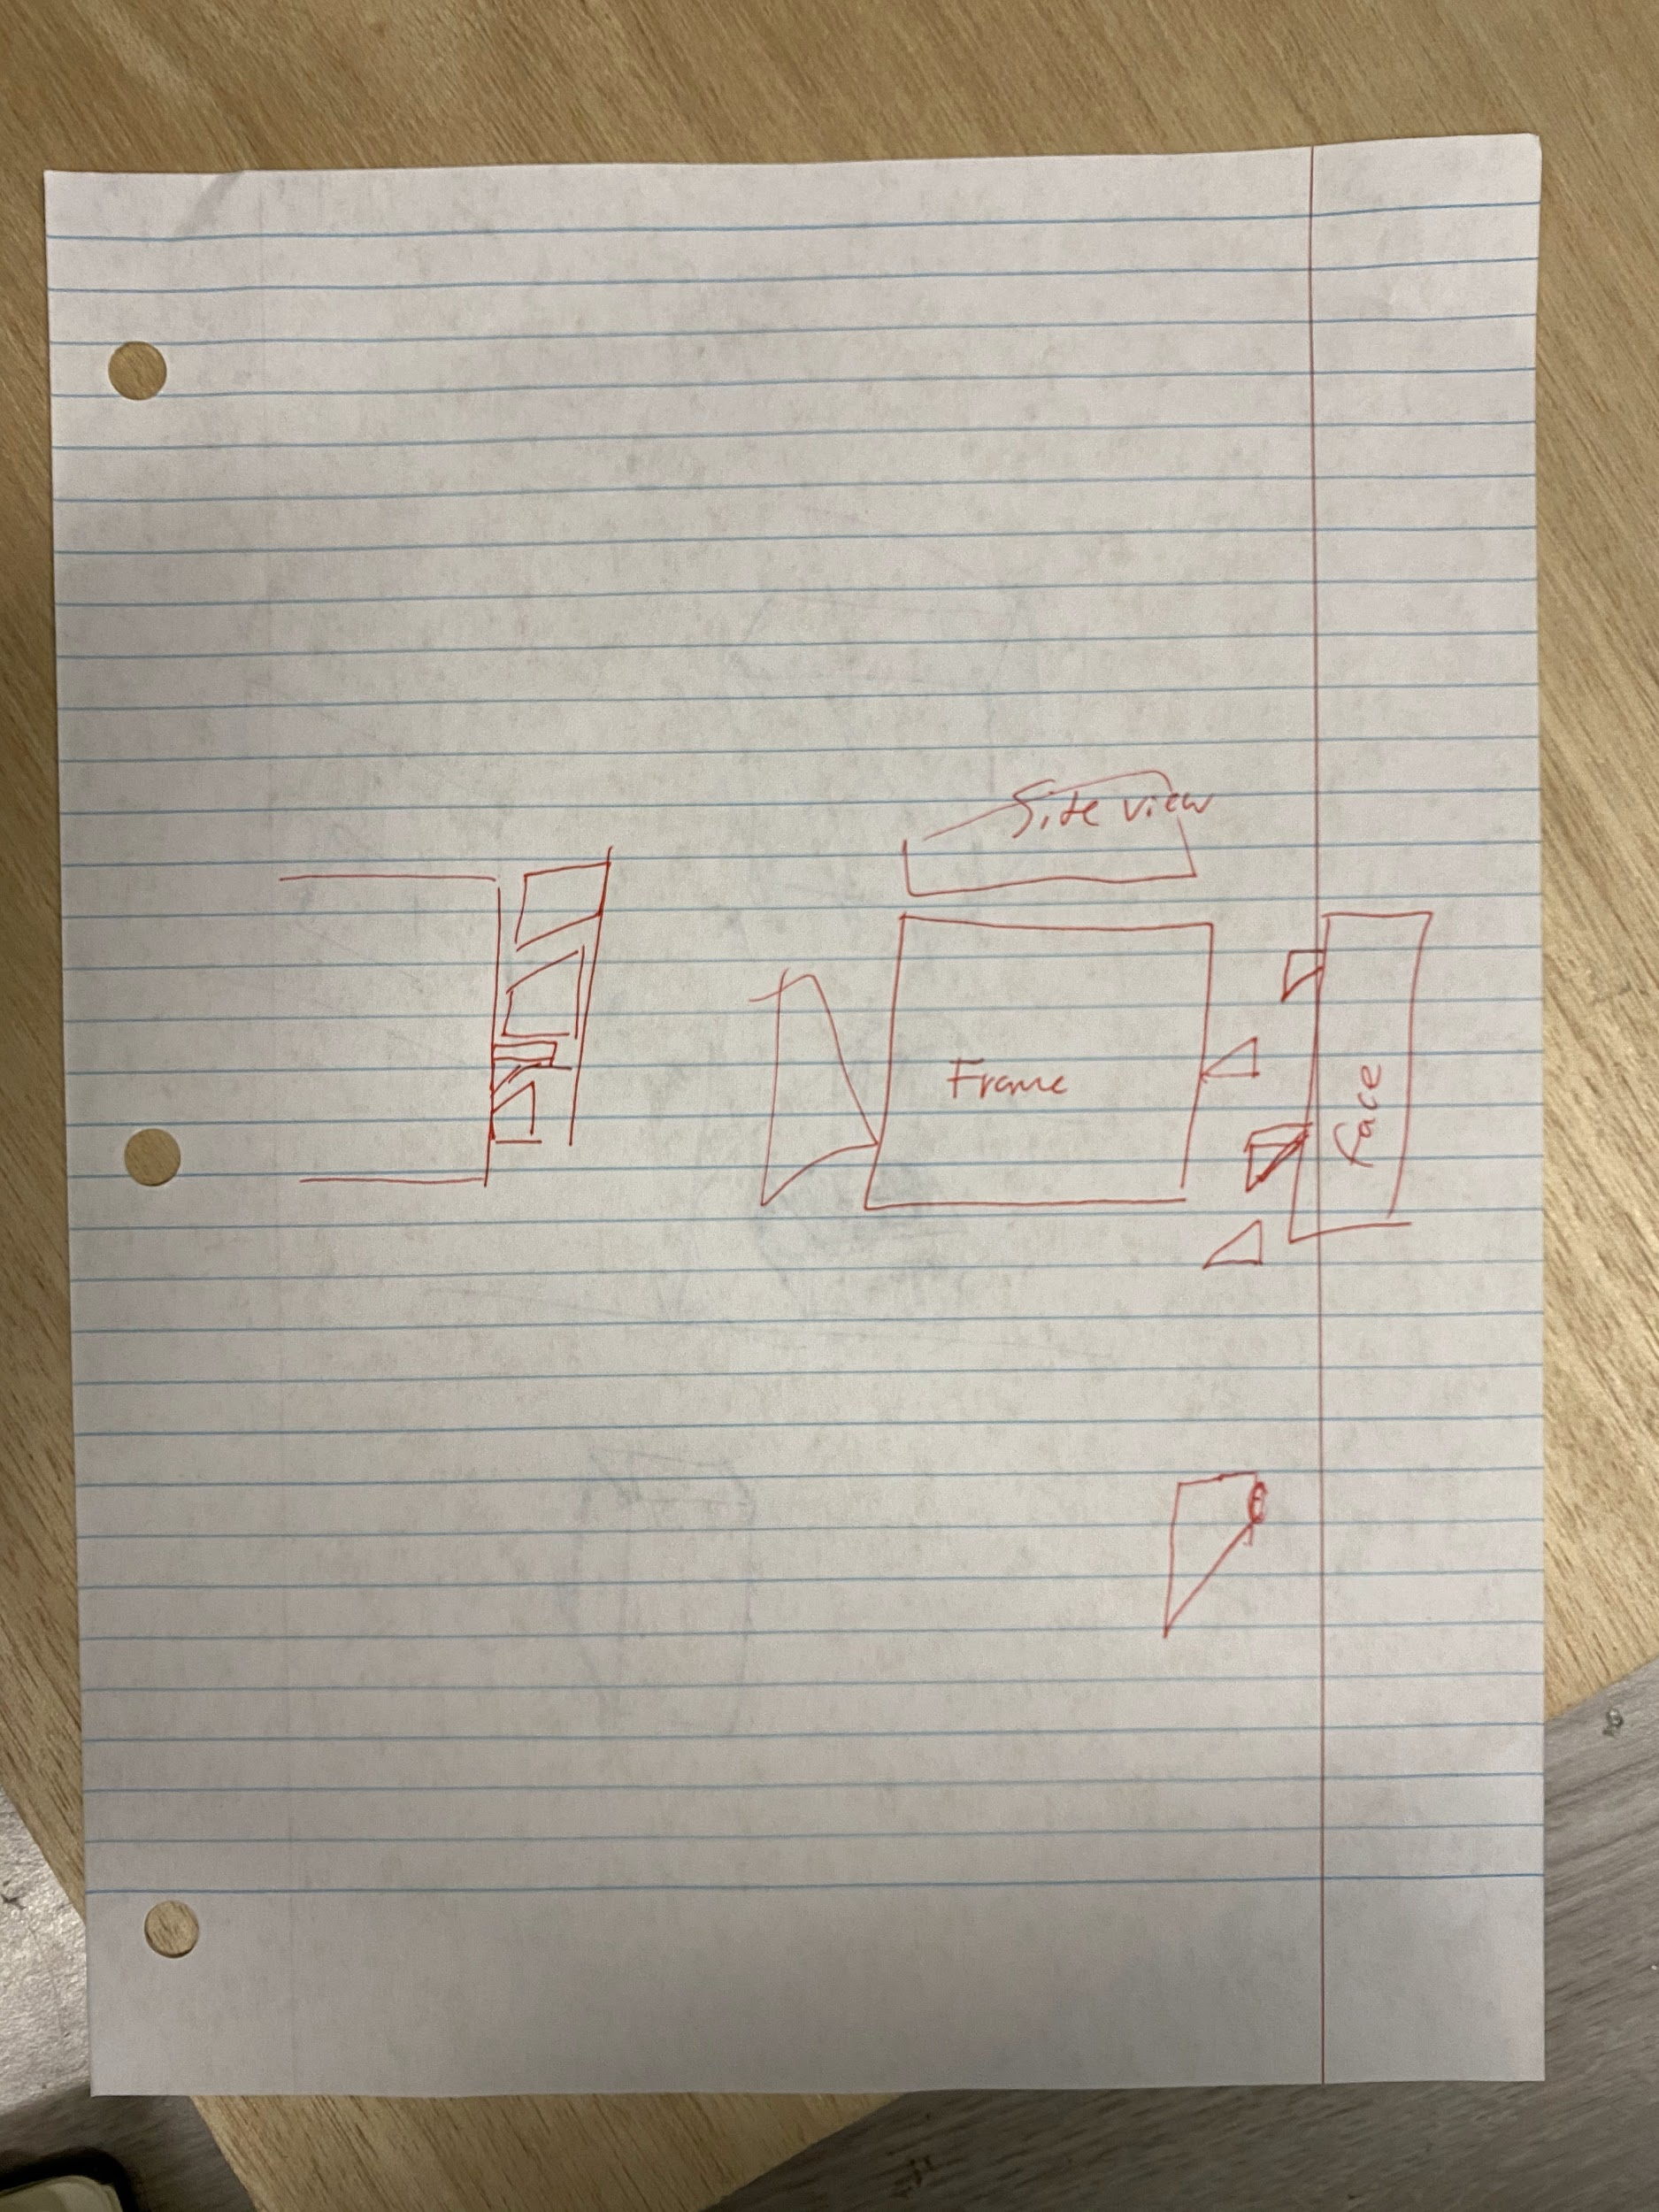 Side view
Frame
Face